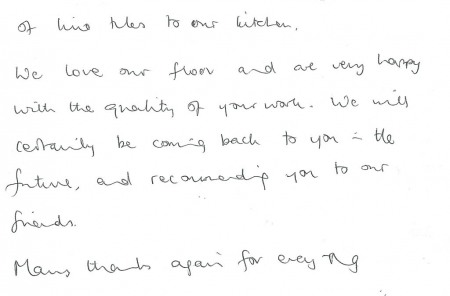 of lino tiles to our kitchen.
We love our floor and are very happy
with the quality of your work. We will
certainly be coming back to you in the
future, and recommending you to our
friends.
Many thanks again for everything